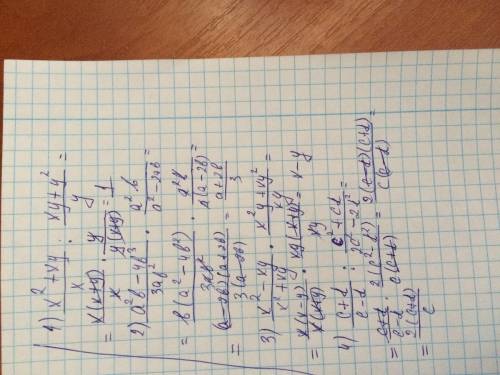 1) (x² + xy)/x : (xy + y²)/y =
= x(x+y)/x · y/y(x+y) = 1
2) (a²b − 4b³)/3ab² · a²b/(a² − 2ab) =
= b(a² − 4b²)/3ab² · a²b/a(a − 2b) =
= (a−2b)(a+2b)/3(a−2b) = (a+2b)/3
3) (x² − xy)/(x² + xy) · (x²y + xy²)/xy =
= x(x−y)/x(x+y) · xy(x+y)/xy = x − y
4) (c+d)/(c−d) : (c² + cd)/(2c² − 2d²) =
= (c+d)/(c−d) · 2(c² − d²)/c(c+d) = 2(c−d)(c+d)/c(c−d) =
= 2(c+d)/c